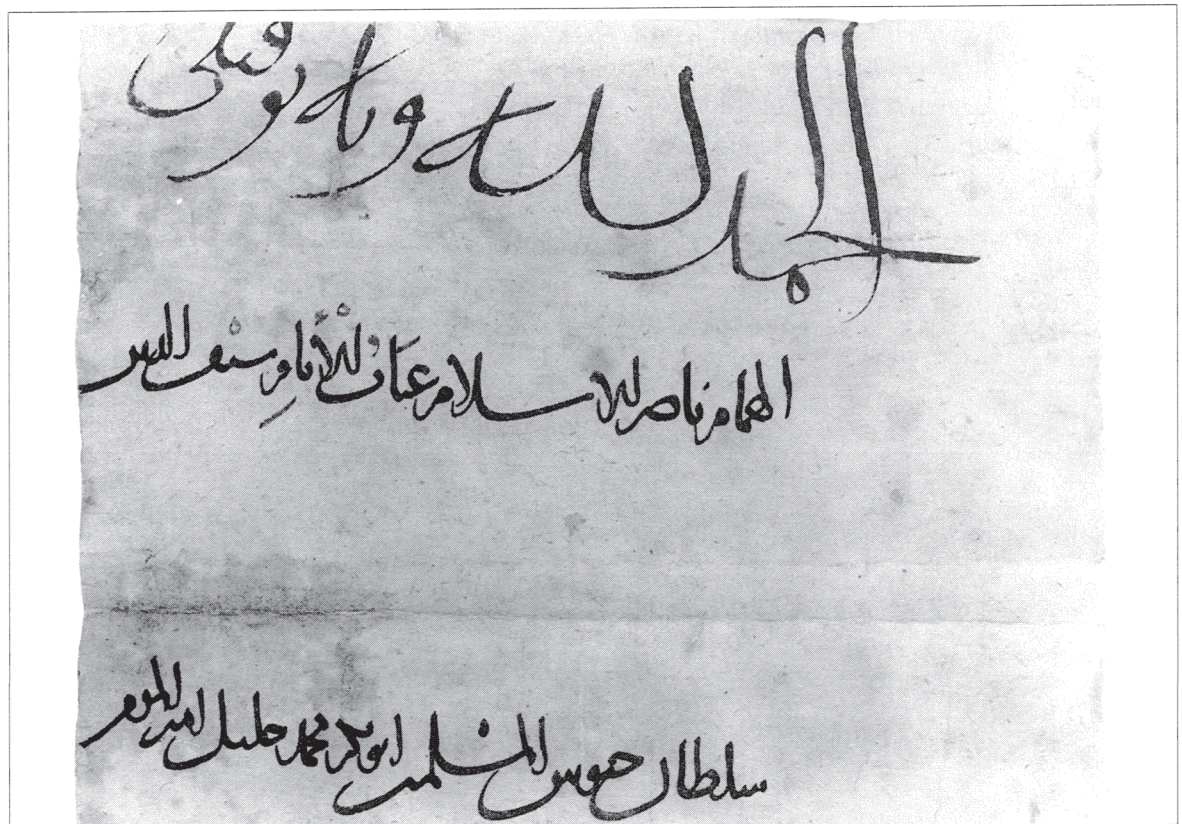 الحمد لله وبه توفيقي
الهمام ناصر الاسلام غياث الأنام سيف الدين
سلطان جيوش المسلمين ابو بكر محمد خليل امير المومنين